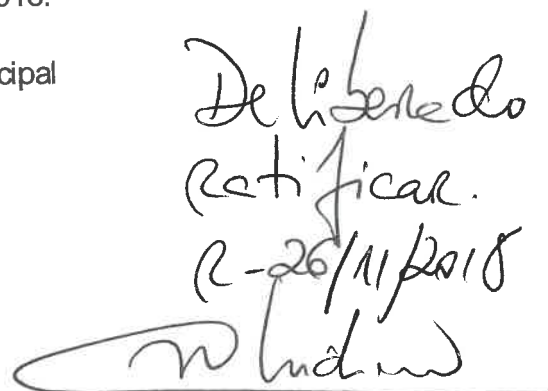 2018.
cipal
Deliberado
Ratificar.
R-26/11/2018